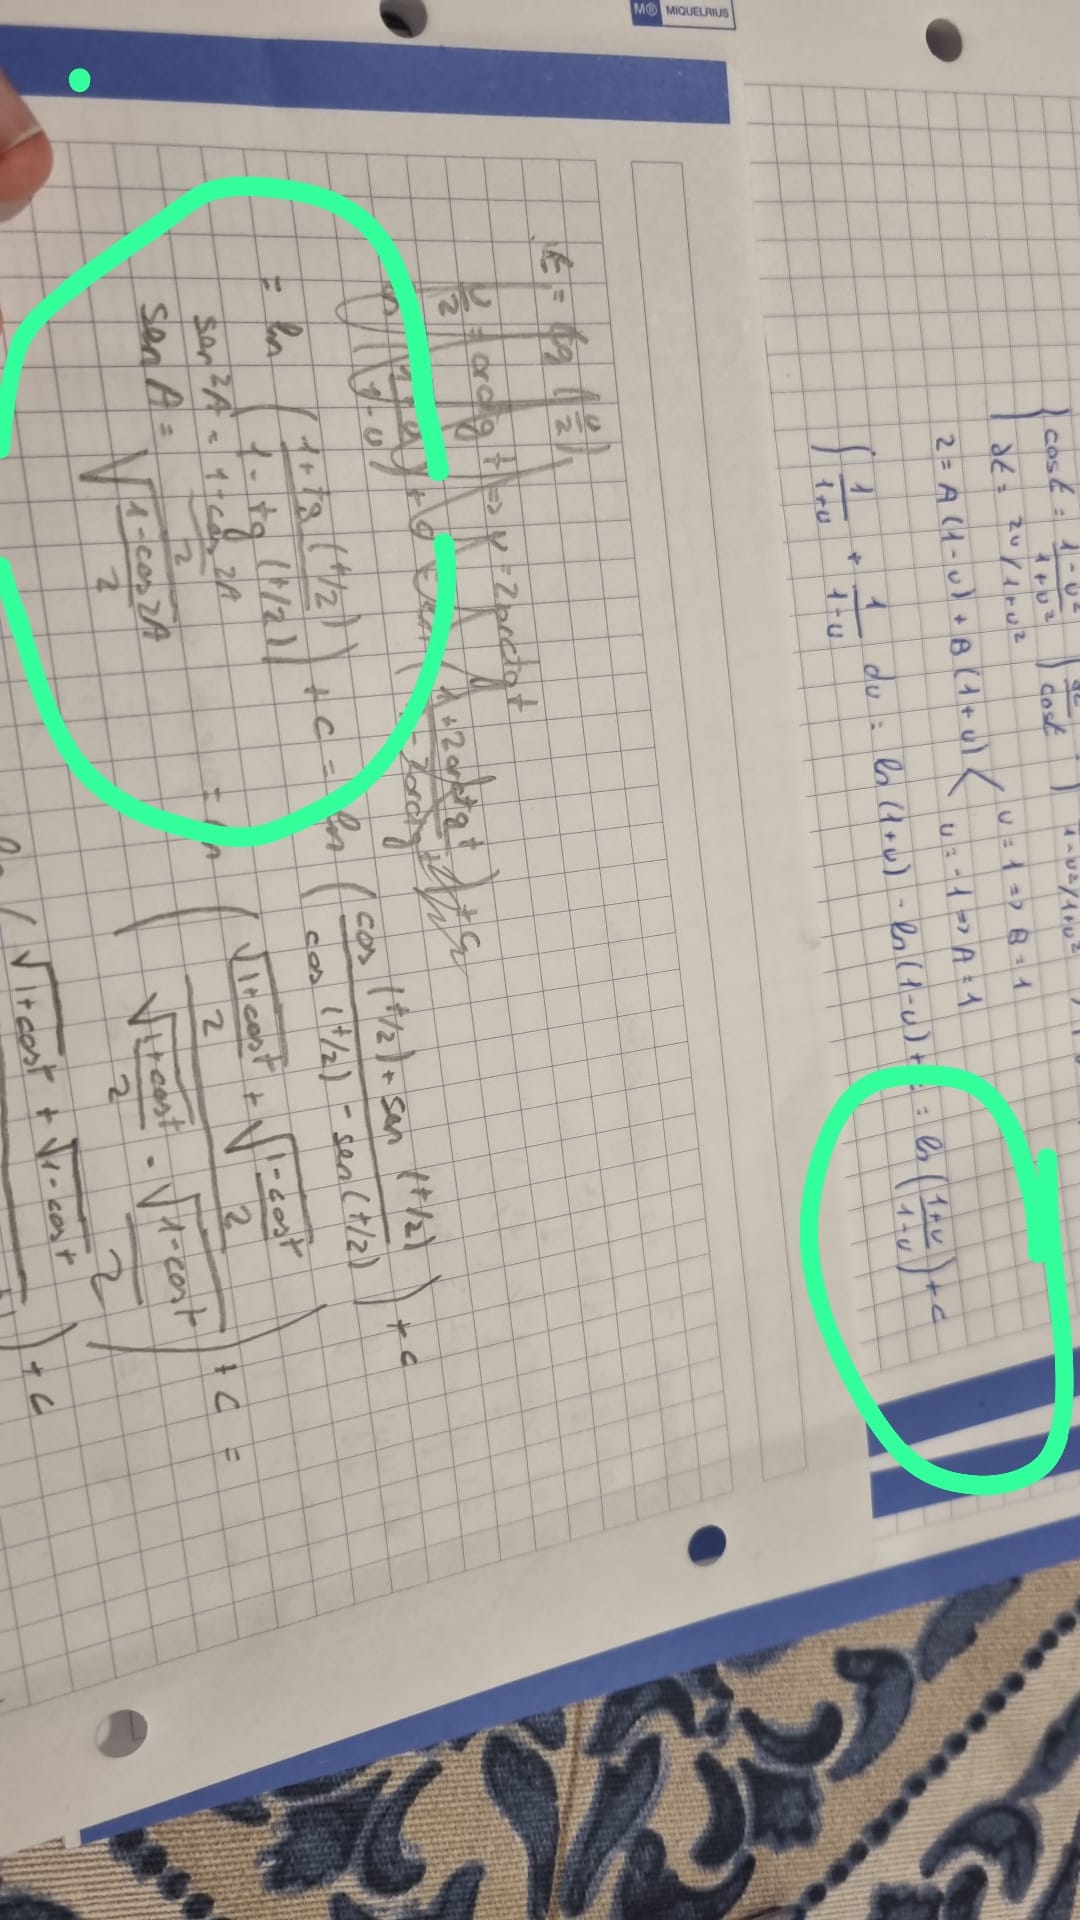 M® MIQUELRIUS
cos t = 1-u² / 1+u²
dt = 2u / 1+u²
∫ dt / cos t
1-u²/1+u²
2 = A(1-u) + B(1+u) < u = 1 => B = 1
u = -1 => A = 1
∫ 1/1+u + 1/1-u du = ln(1+u) - ln(1-u) + = ln(1+u / 1-u) + c
t = tg(u/2)
u/2 = arctg t => u = 2arctg t
= ln(1+tg(t/2) / 1-tg(t/2)) + c = ln(cos(t/2) + sen(t/2) / cos(t/2) - sen(t/2)) + c
sen²A = 1-cos2A / 2
sen A = √1-cos2A / 2
= (√1+cost / 2 + √1-cost / 2 / √1+cost / 2 - √1-cost / 2) + c =
√1+cost + √1-cost
) + c